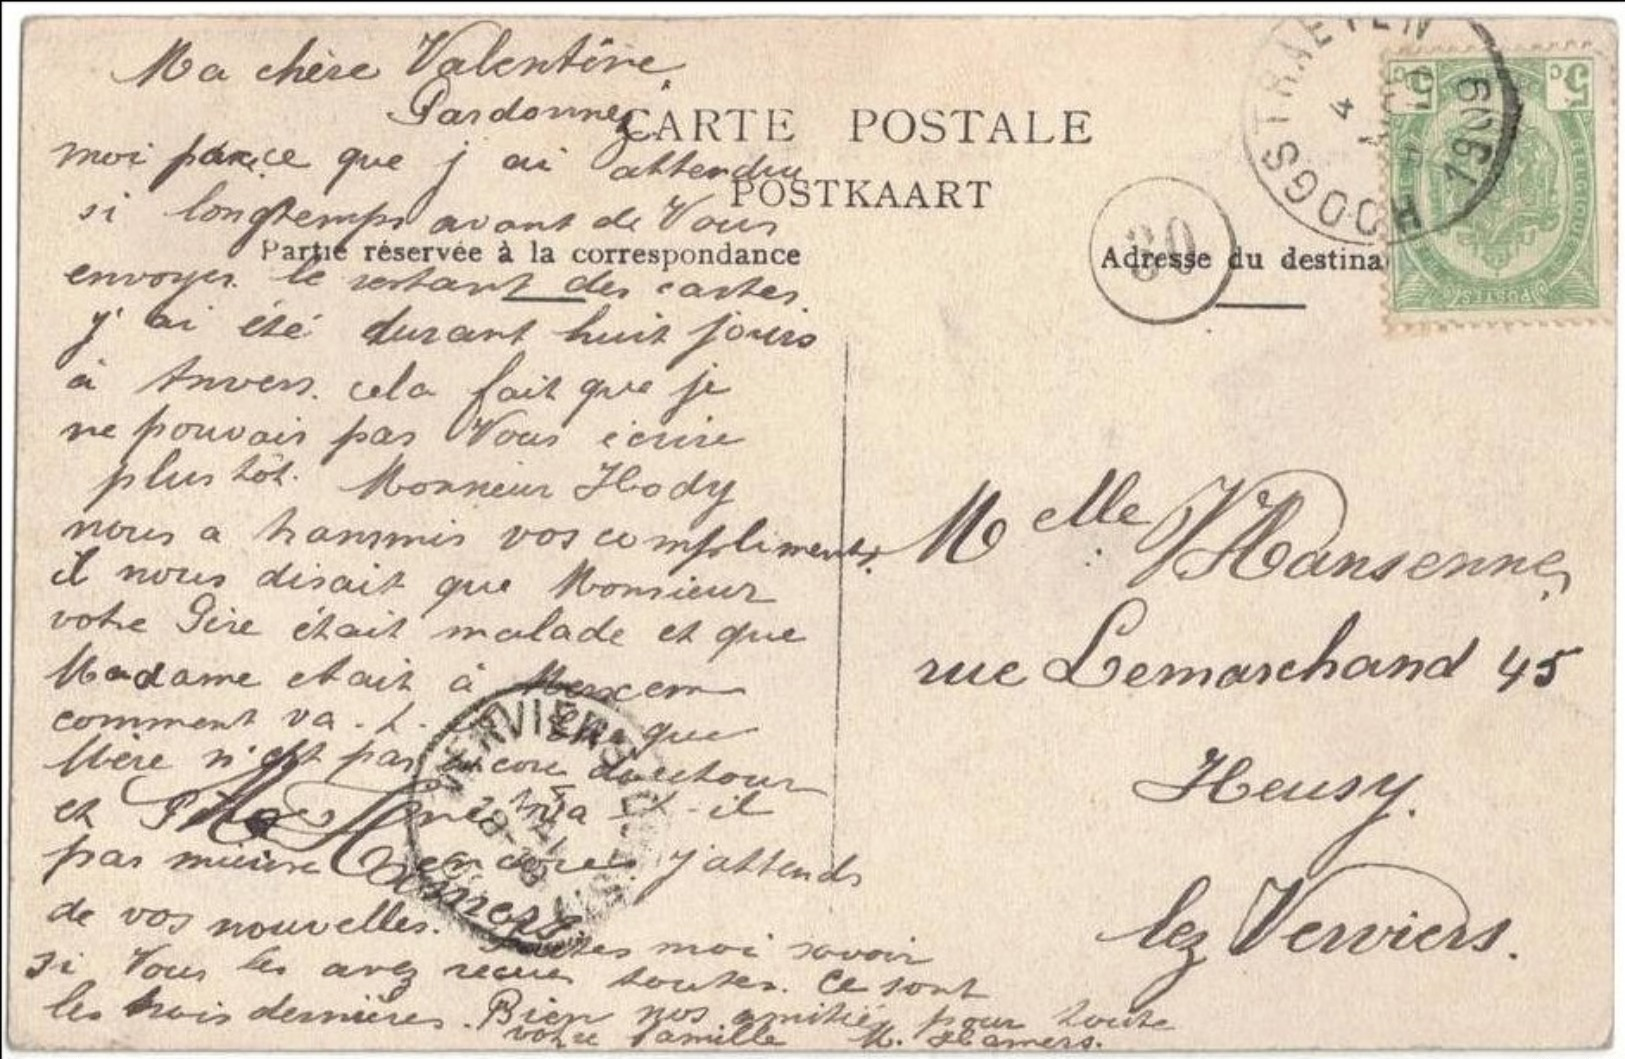 Ma chère Valentine,
Pardonnez
moi parce que j ai attendu
si longtemps avant de Vous
envoyer le restant des cartes.
j' ai été durant huit jours
à Anvers. cela fait que je
ne pouvais pas Vous écrire
plus tôt. Monsieur Hody
nous a transmis vos compliments.
il nous disait que Monsieur
votre Père était malade et que
Madame etait à Merxem
comment va-t-
que
Mère n'est pas encore
et va t-il
pas mieux encore. j'attends
de vos nouvelles. Faites moi savoir
si Vous les avez recues toutes. Ce sont
les trois dernières. Bien nos amitiés pour toute
votre famille M. Hamers.
CARTE POSTALE
POSTKAART
Partie réservée à la correspondance
Adresse du destina
HOOGSTRAETEN
4
1909
30
5c
5c
BELGIQUE
POSTES
Melle V Hansenne,
rue Lemarchand 45
Heusy.
lez Verviers.
VERVIERS
M. Hamers